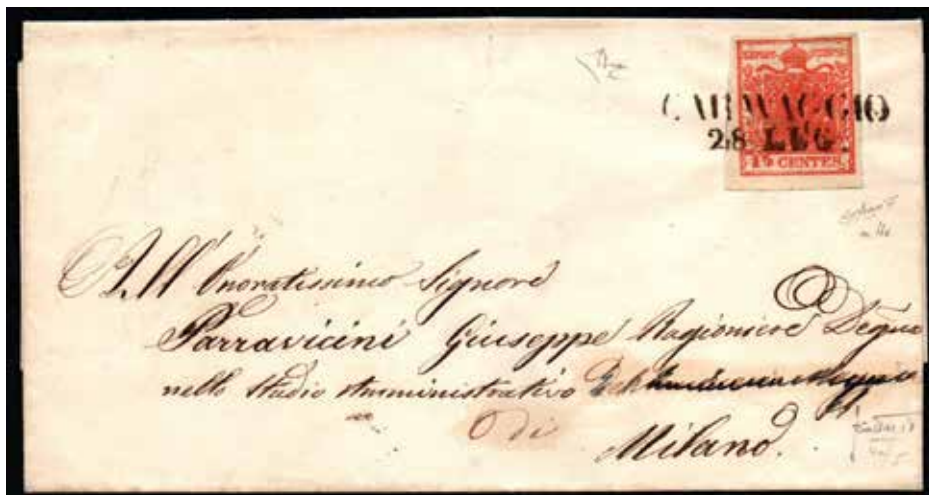 CARAVAGGIO
28 LUG.
15 CENTES.
All' Onoratissimo Signore
Parravicini Giuseppe Ragioniere Degno
nello Studio Amministrativo
di
Milano.